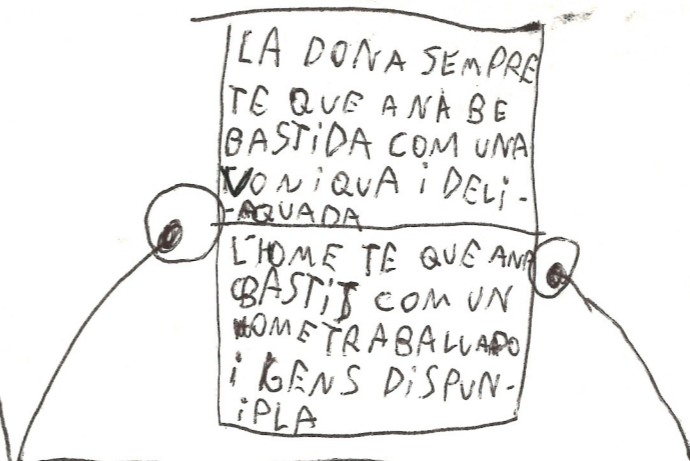 LA DONA SEMPRE
TE QUE ANÀ BE
BASTiDA COM UNA
VONiQUA i DELi-
-AQUADA
L'HOME TE QUE ANA
BASTiT COM UN
HOME TRABALUADO
i GENS DiSPUN-
iPLA